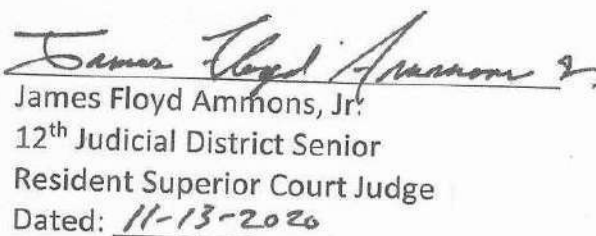 James Floyd Ammons Jr.
James Floyd Ammons, Jr.
12th Judicial District Senior
Resident Superior Court Judge
Dated: 11-13-2020